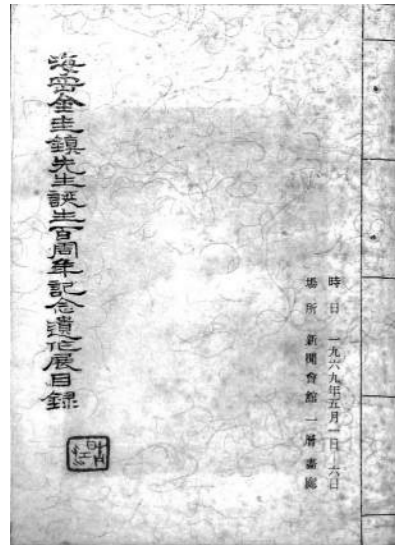 海岡金圭鎭先生誕生百周年記念遺作展目錄
時日 一九六九年五月一日—六日
場所 新聞會館 一層 畵廊